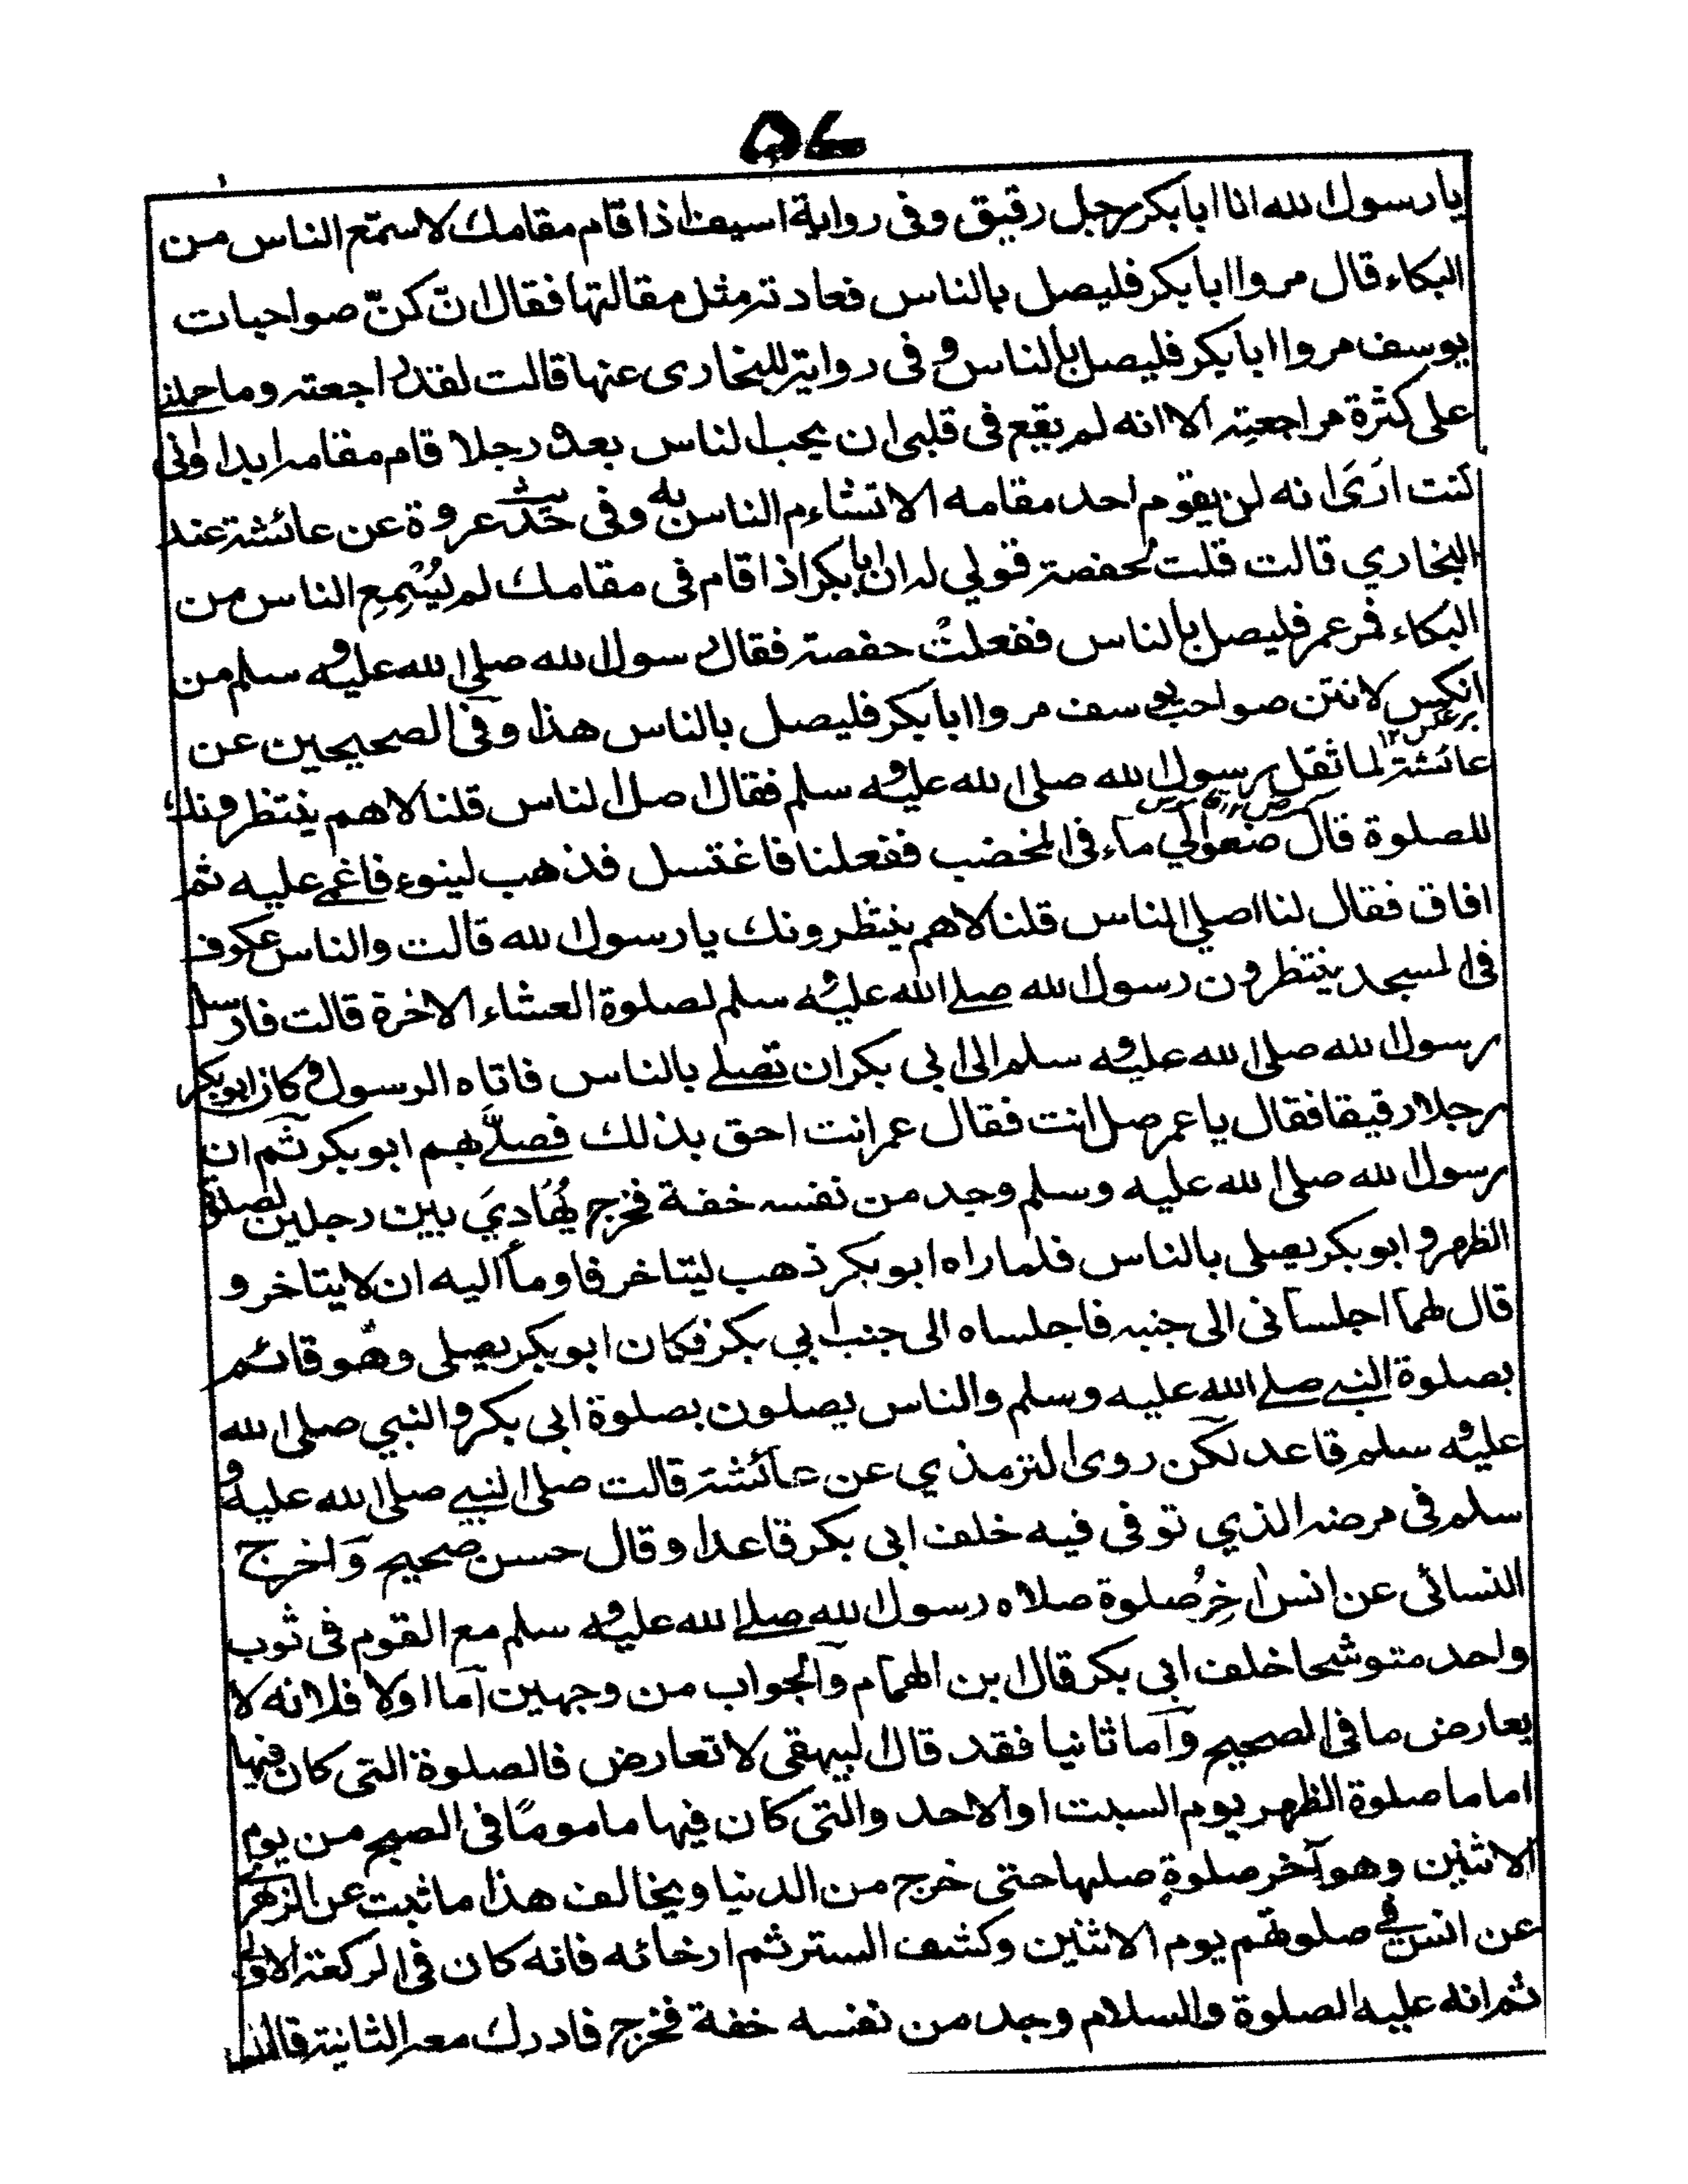 ٥٧
يا رسول الله انا ابا بكر رجل رقيق وفى رواية اسيف اذا قام مقامك لا ستمع الناس من
البكاء قال مروا ابا بكر فليصل بالناس فعادته مثل مقالتها فقال انّ كنّ صواحبات
يوسف مروا ابا بكر فليصل بالناس وفى رواية للبخارى عنها قالت لقد راجعته وما حملنے
على كثرة مراجعته الا انه لم يقع فى قلبى ان يحب الناس بعده رجلا قام مقامه ابدا وانى
كنت ارى انه لن يقوم احد مقامه الا تشاءم الناس به وفى حديث عروة عن عائشة عند
البخاري قالت قلت لحفصة قولي له ان ابا بكر اذا قام فى مقامك لم يُسْمِعِ الناس من
البكاء فمر عمر فليصل بالناس ففعلتْ حفصة فقال رسول الله صلى الله عليه وسلم من
انكس لانتن صواحب يوسف مروا ابا بكر فليصل بالناس هذا وفى الصحيحين عن
برعكس ١٢
عائشة لما ثقل رسول الله صلى الله عليه وسلم فقال اصل الناس قلنا لا هم ينتظرونك
للصلوة قال ضعوا لي ماء فى المخضب ففعلنا فاغتسل فذهب لينوء فاغمى عليه ثم
افاق فقال لنا اصلى الناس قلنا لا هم ينتظرونك يا رسول الله قالت والناس عكوف
فى المسجد ينتظرون رسول الله صلے الله عليه وسلم لصلوة العشاء الاخرة قالت فارسل
رسول الله صلى الله عليه وسلم الى ابى بكر ان تصلے بالناس فاتاه الرسول وكان ابو بكر
رجلا رقيقا فقال يا عمر صل انت فقال عمر انت احق بذلك فصلّے بهم ابو بكر ثم ان
رسول الله صلى الله عليه وسلم وجد من نفسه خفة فخرج يُهَادي بين رجلين لصلوة
الظهر و ابو بكر يصلى بالناس فلما راه ابو بكر ذهب ليتاخر فاومأ اليه ان لا يتاخر و
قال لهما اجلسانى الى جنبه فاجلساه الى جنب ابي بكر فكان ابو بكر يصلى وهو قائم
بصلوة النبے صلے الله عليه وسلم والناس يصلون بصلوة ابى بكر والنبي صلى الله
عليه وسلم قاعد لكن روى الترمذي عن عائشة قالت صلى النبے صلى الله عليه و
سلم فى مرضه الذي توفى فيه خلف ابى بكر قاعدا وقال حسن صحيح واخرج
النسائى عن انس اخِرُ صلوة صلاه رسول الله صلے الله عليه وسلم مع القوم فى ثوب
واحد متوشحا خلف ابى بكر قال ابن الهمام والجواب من وجهين اما اولا فلانه لا
يعارض ما فى الصحيح واما ثانيا فقد قال البيهقى لا تعارض فالصلوة التى كان فيها
اماما صلوة الظهر يوم السبت او الاحد والتى كان فيها ماموما فى الصبح من يوم
الاثنين وهو آخر صلوة صلها حتى خرج من الدنيا ويخالف هذا ما ثبت عن الزهرى
عن انس فى صلوتهم يوم الاثنين وكشف الستر ثم ارخائه فانه كان فى الركعة الاولى
ثم انه عليه الصلوة والسلام وجد من نفسه خفة فخرج فادرك معه الثانية